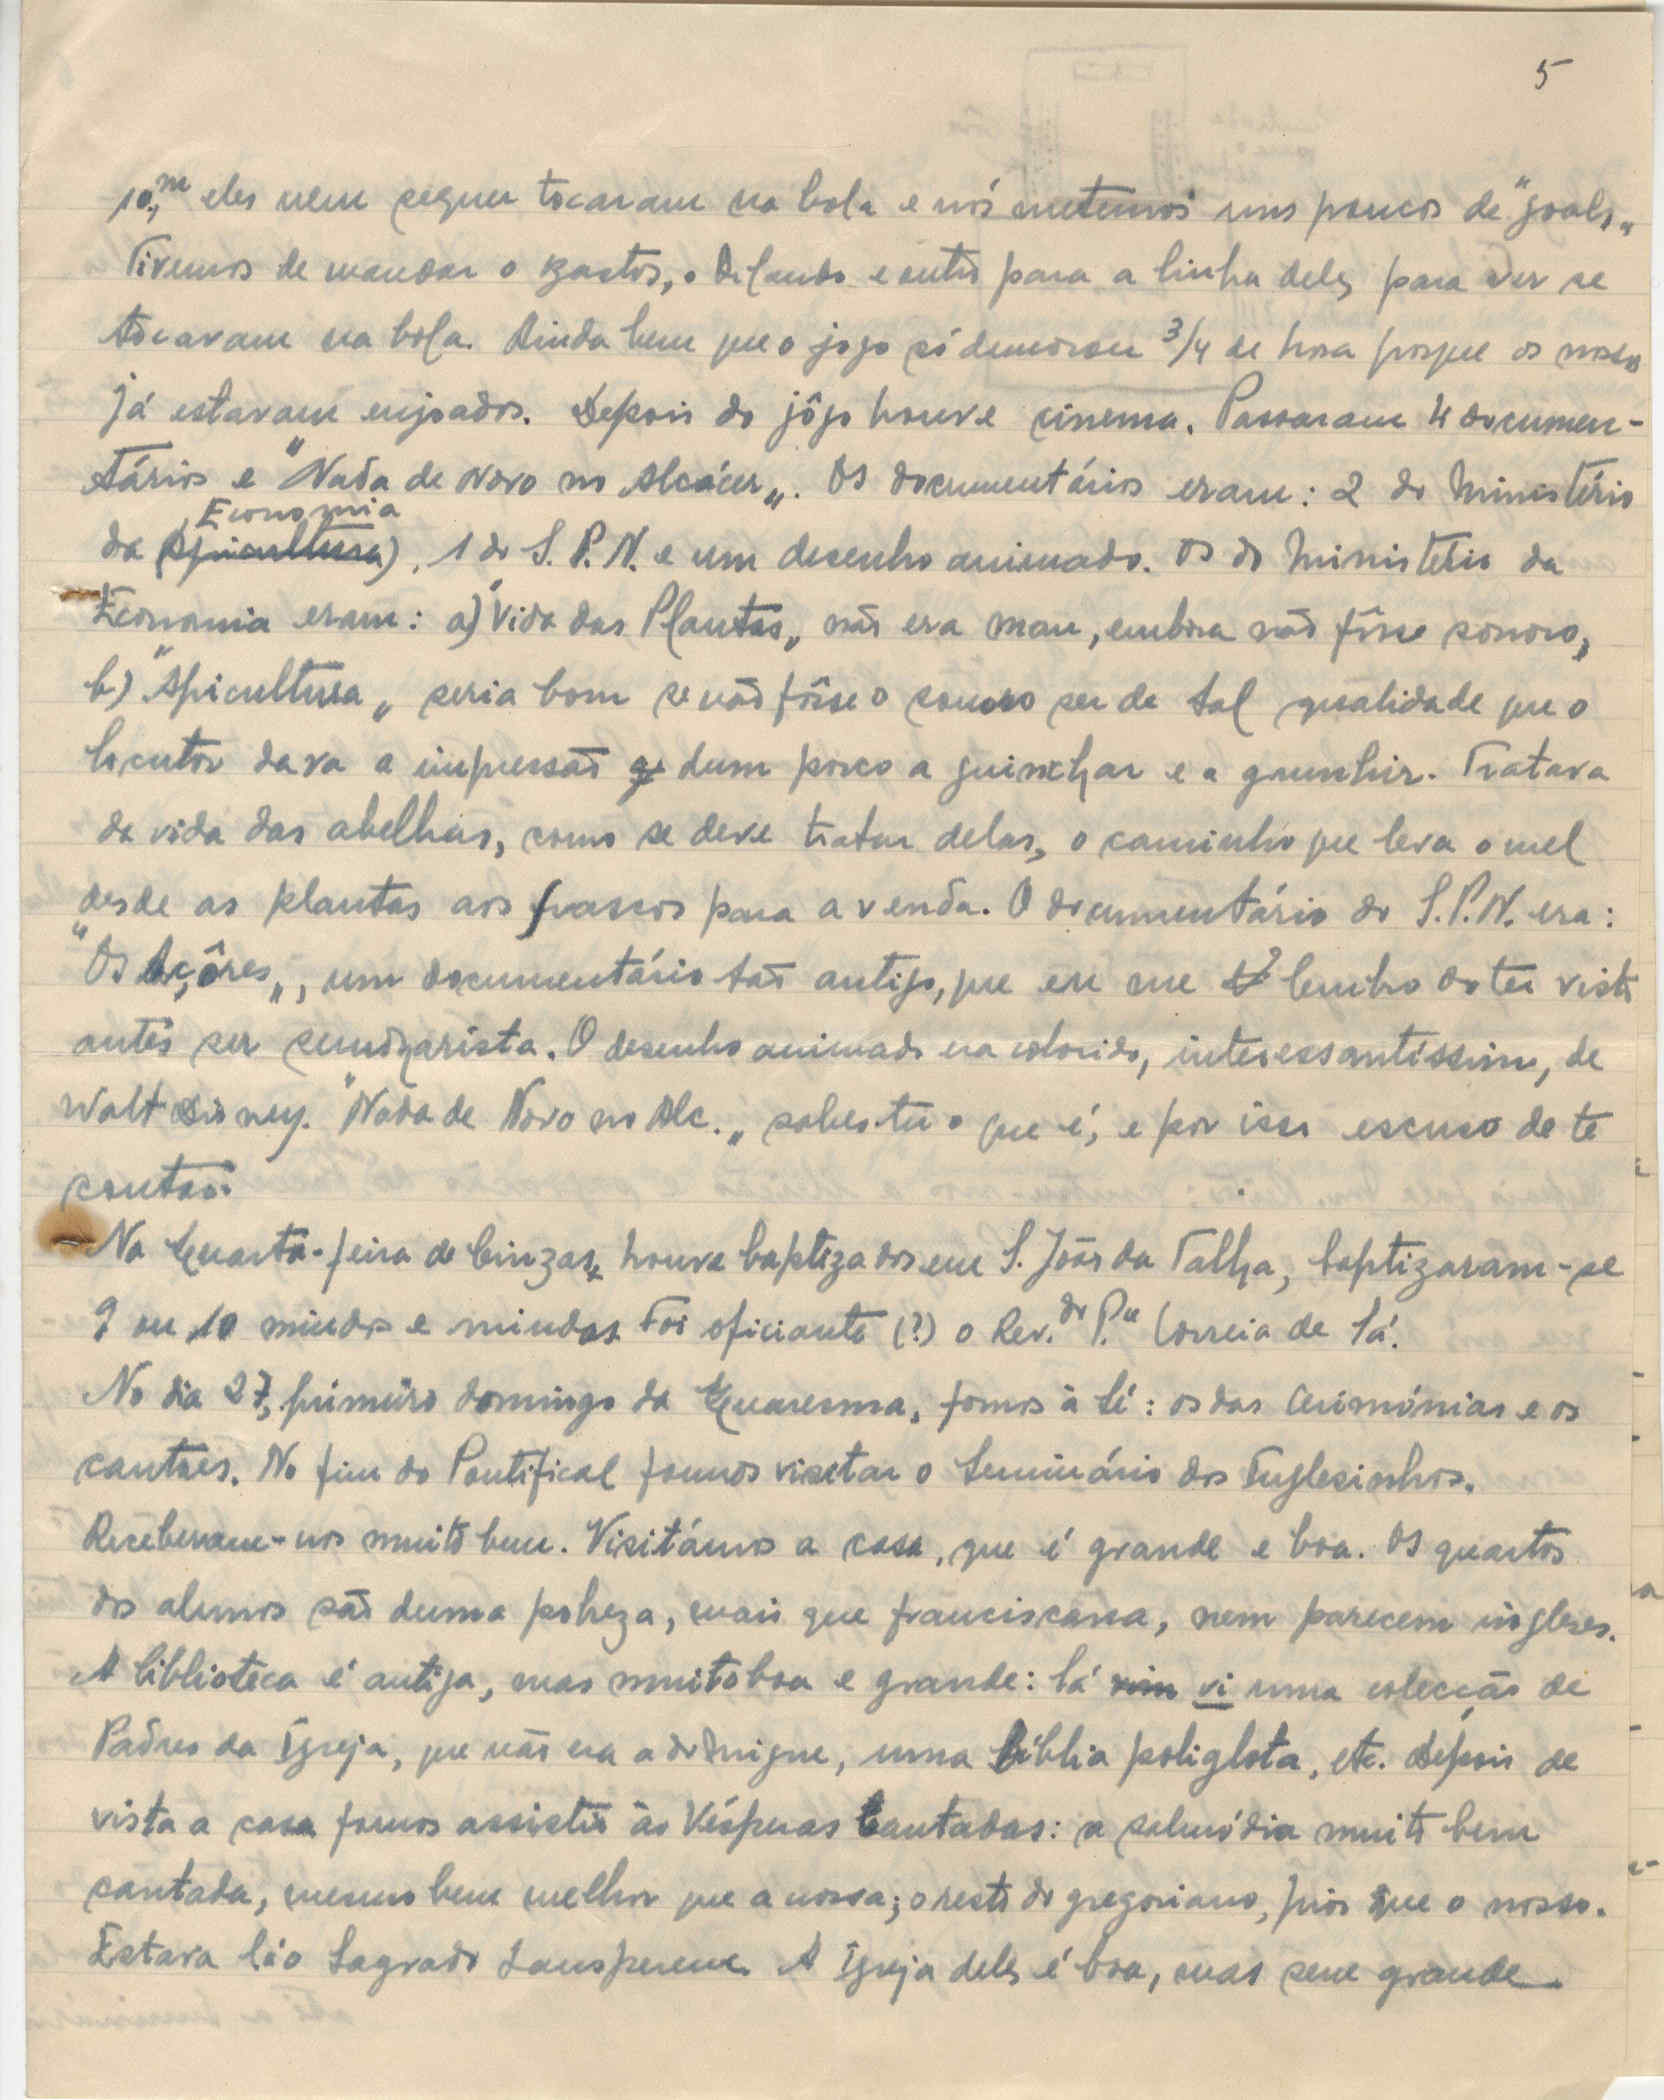 5
10,m eles nem sequer tocaram na bola e nós metemos uns poucos de "goals„
Tivemos de mandar o Bastos, o Orlando e outro para a linha deles para ver se
tocavam na bola. Ainda bem que o jogo só demorou 3/4 de hora porque os nossos
já estavam enjoados. Depois do jôgo houve cinema. Passaram 4 documen-
tários e "Nada de novo no Alcácer„. Os documentários eram: 2 do Ministério
Economia
da (Apicultura), 1 do S.P.N. e um desenho animado. Os do Ministério da
Economia eram: a) "Vida das Plantas„ não era mau, embora não fôsse sonoro,
b) "Apicultura„ seria bom se não fôsse o sonoro ser de tal qualidade que o
locutor dava a impressão dum porco a guinchar e a grunhir. Tratava
da vida das abelhas, como se deve tratar delas, o caminho que leva o mel
desde as plantas aos frascos para a venda. O documentário do S.P.N. era:
"Os Açôres„, um documentário tão antigo, que eu me lembro de ter visto
antes ser seminarista. O desenho animado era colorido, interessantíssimo, de
Walt Disney. "Nada de Novo no Alc.„ sabes tu o que é, e por isso escuso de te
contar.
Na Quarta-feira de Cinzas, houve baptizados em S. João da Talha, baptizaram-se
9 ou 10 miudos e miudas Foi oficiante (?) o Rev.do P.e Correia de Sá.
No dia 27, primeiro domingo da Quaresma, fomos à Sé: os das Cerimónias e os
cantores. No fim do Pontifical fomos visitar o Seminário dos Inglesinhos.
Receberam-nos muito bem. Visitámos a casa, que é grande e boa. Os quartos
dos alunos são duma pobreza, mais que franciscana, nem parecem ingleses.
A biblioteca é antiga, mas muito boa e grande: lá vi uma colecção de
Padres da Igreja, que não era a do Migne, uma Bíblia poliglota, etc. Depois de
vista a casa fomos assistir às Vésperas Cantadas: a salmódia muito bem
cantada, mesmo bem melhor que a nossa; o resto do gregoriano, pior que o nosso.
Estava lá o Sagrado Lausperene. A Igreja deles é boa, mas sem grande